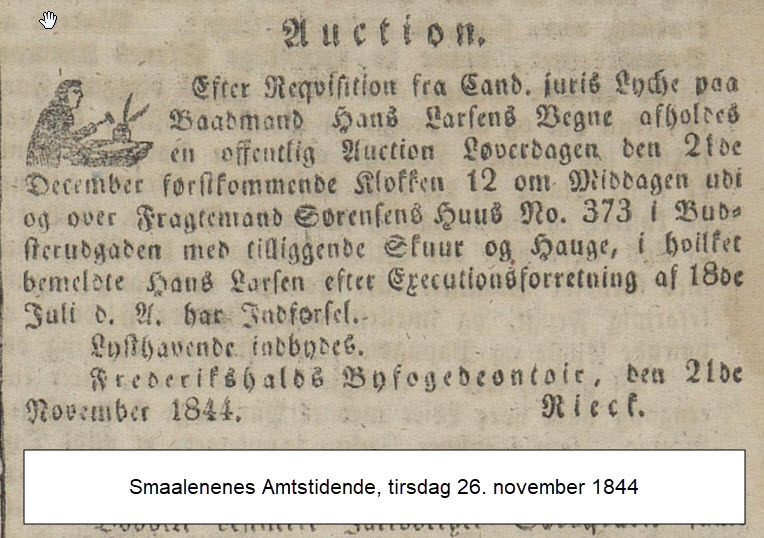 Auction.
Efter Reqvisition fra Cand. juris Lyche paa
Baadmand Hans Larsens Vegne afholdes
en offentlig Auction Løverdagen den 21de
December førstkommende Klokken 12 om Middagen udi
og over Fragtemand Sørensens Huus No. 373 i Bud-
sterudgaden med tilliggende Skuur og Hauge, i hvilket
bemeldte Hans Larsen efter Executionsforretning af 18de
Juli d. A. har Indførsel.
Lysthavende indbydes.
Frederikshalds Byfogedcontoir, den 21de
November 1844. Rieck.
Smaalenenes Amtstidende, tirsdag 26. november 1844